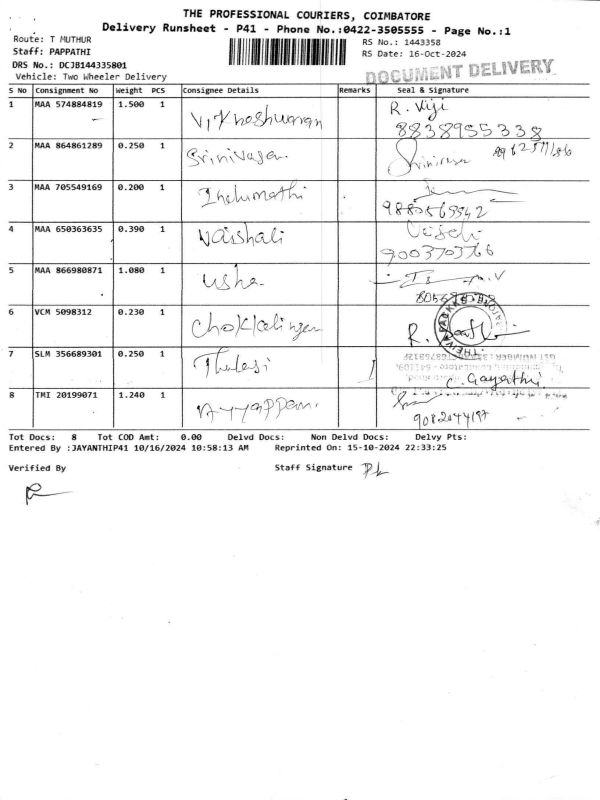 THE PROFESSIONAL COURIERS, COIMBATORE
Delivery Runsheet - P41 - Phone No.:0422-3505555 - Page No.:1
Route: T MUTHUR
RS No.: 1443358
Staff: PAPPATHI
RS Date: 16-Oct-2024
DRS No.: DCJB144335801
DOCUMENT DELIVERY
Vehicle: Two Wheeler Delivery
S No Consignment No Weight PCS Consignee Details Remarks Seal & Signature
1 MAA 574884819 1.500 1 Vikneshwaran R. Viji
8838955338
2 MAA 864861289 0.250 1 Srinivasan
3 MAA 705549169 0.200 1 Indumathi
4 MAA 650363635 0.390 1 Vaishali
9003703766
5 MAA 866980871 1.080 1 Usha
6 VCM 5098312 0.230 1 Chokkalingam R.
7 SLM 356689301 0.250 1 Thulasi C. Gayathri
8 TMI 20199071 1.240 1 Ayyappan.
Tot Docs: 8 Tot COD Amt: 0.00 Delvd Docs: Non Delvd Docs: Delvy Pts:
Entered By :JAYANTHIP41 10/16/2024 10:58:13 AM Reprinted On: 15-10-2024 22:33:25
Verified By Staff Signature